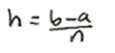 h = \frac{b-a}{n}